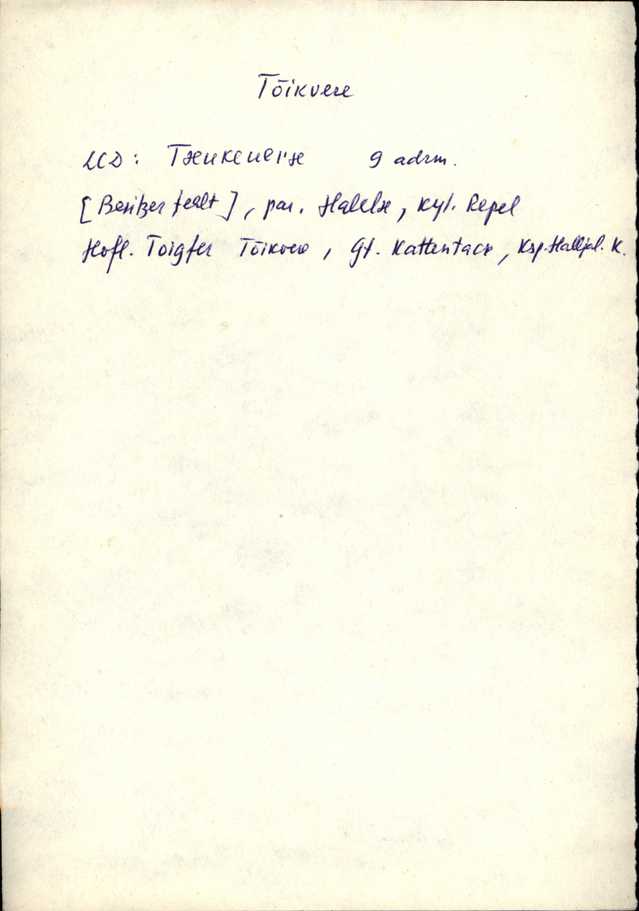 Tõikvere
LCD: Tæukeueræ 9 adrm.
[Besitzer fehlt], par. Halelæ, Kyl. Repel
Hofl. Toigfer Tõikvere, Gt. Kattentack, Ksp. Halljal. K.